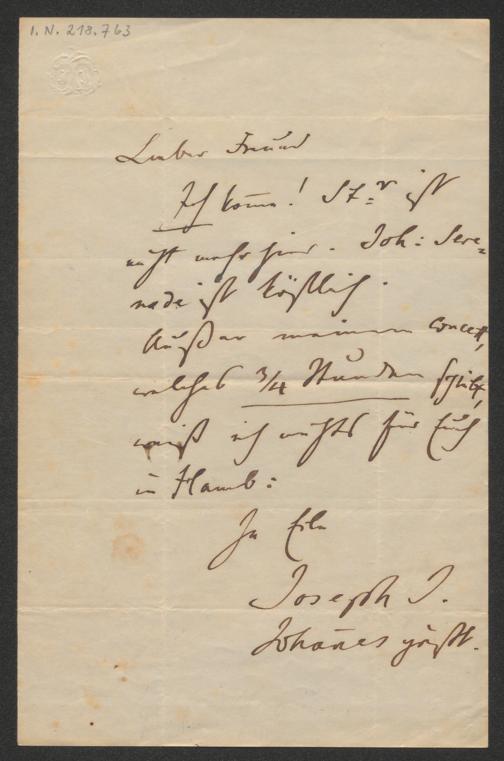 I. N. 218.763
Lieber Freund
Ich komme! St:r ist
nicht mehr hier. Joh: Sere=
nade ist köstlich.
Außer meinem Concert,
welches 3/4 Stunden spielt,
weiß ich nichts für Euch
in Hamb:
In Eile
Joseph J.
Johannes grüßt.